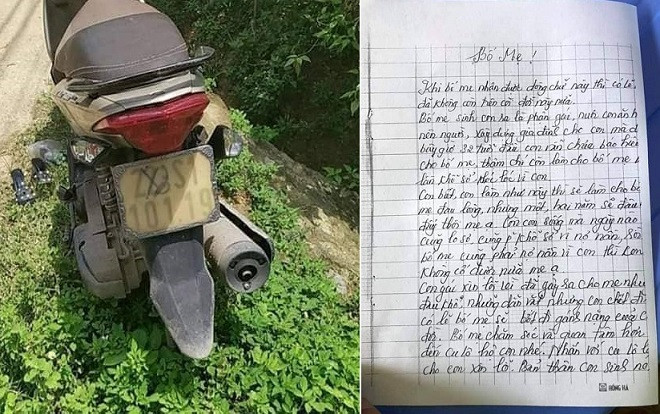 Bố Mẹ !
Khi bố mẹ nhận được dòng chữ này thì có lẽ
đã không con trên cõi đời này nữa.
Bố mẹ sinh con ra là phận gái, nuôi con ăn h
nên người, xây dựng gia đình cho con mà đ
bây giờ 32 tuổi đầu con vẫn chưa báo hiếu
cho bố mẹ thậm chí còn làm cho bố mẹ
khổ sở vì con
Con biết con làm như này thì sẽ làm cho bố
mẹ đau lòng, nhưng một, hai năm sẽ
đây thôi mẹ ạ. Còn con sống mà ngày nào
cũng lo sợ, cũng p khổ sở vì nợ nần, sốn
bố mẹ cũng phải nợ nần vì con thì con
không cố được nữa mẹ ạ
Con gái xin lỗi lại đã gây ra cho mẹ nhi
đau khổ nhưng con chết đi
có lẽ bố mẹ sẽ bớt đi gánh nặng cuộc
đời. Bố mẹ chăm sóc và quan tâm hơn
đến cu tô hộ con nhé. Nhắn với cu tô là
cho con xin lỗi. Bản thân con sinh ra
HỒNG HÀ